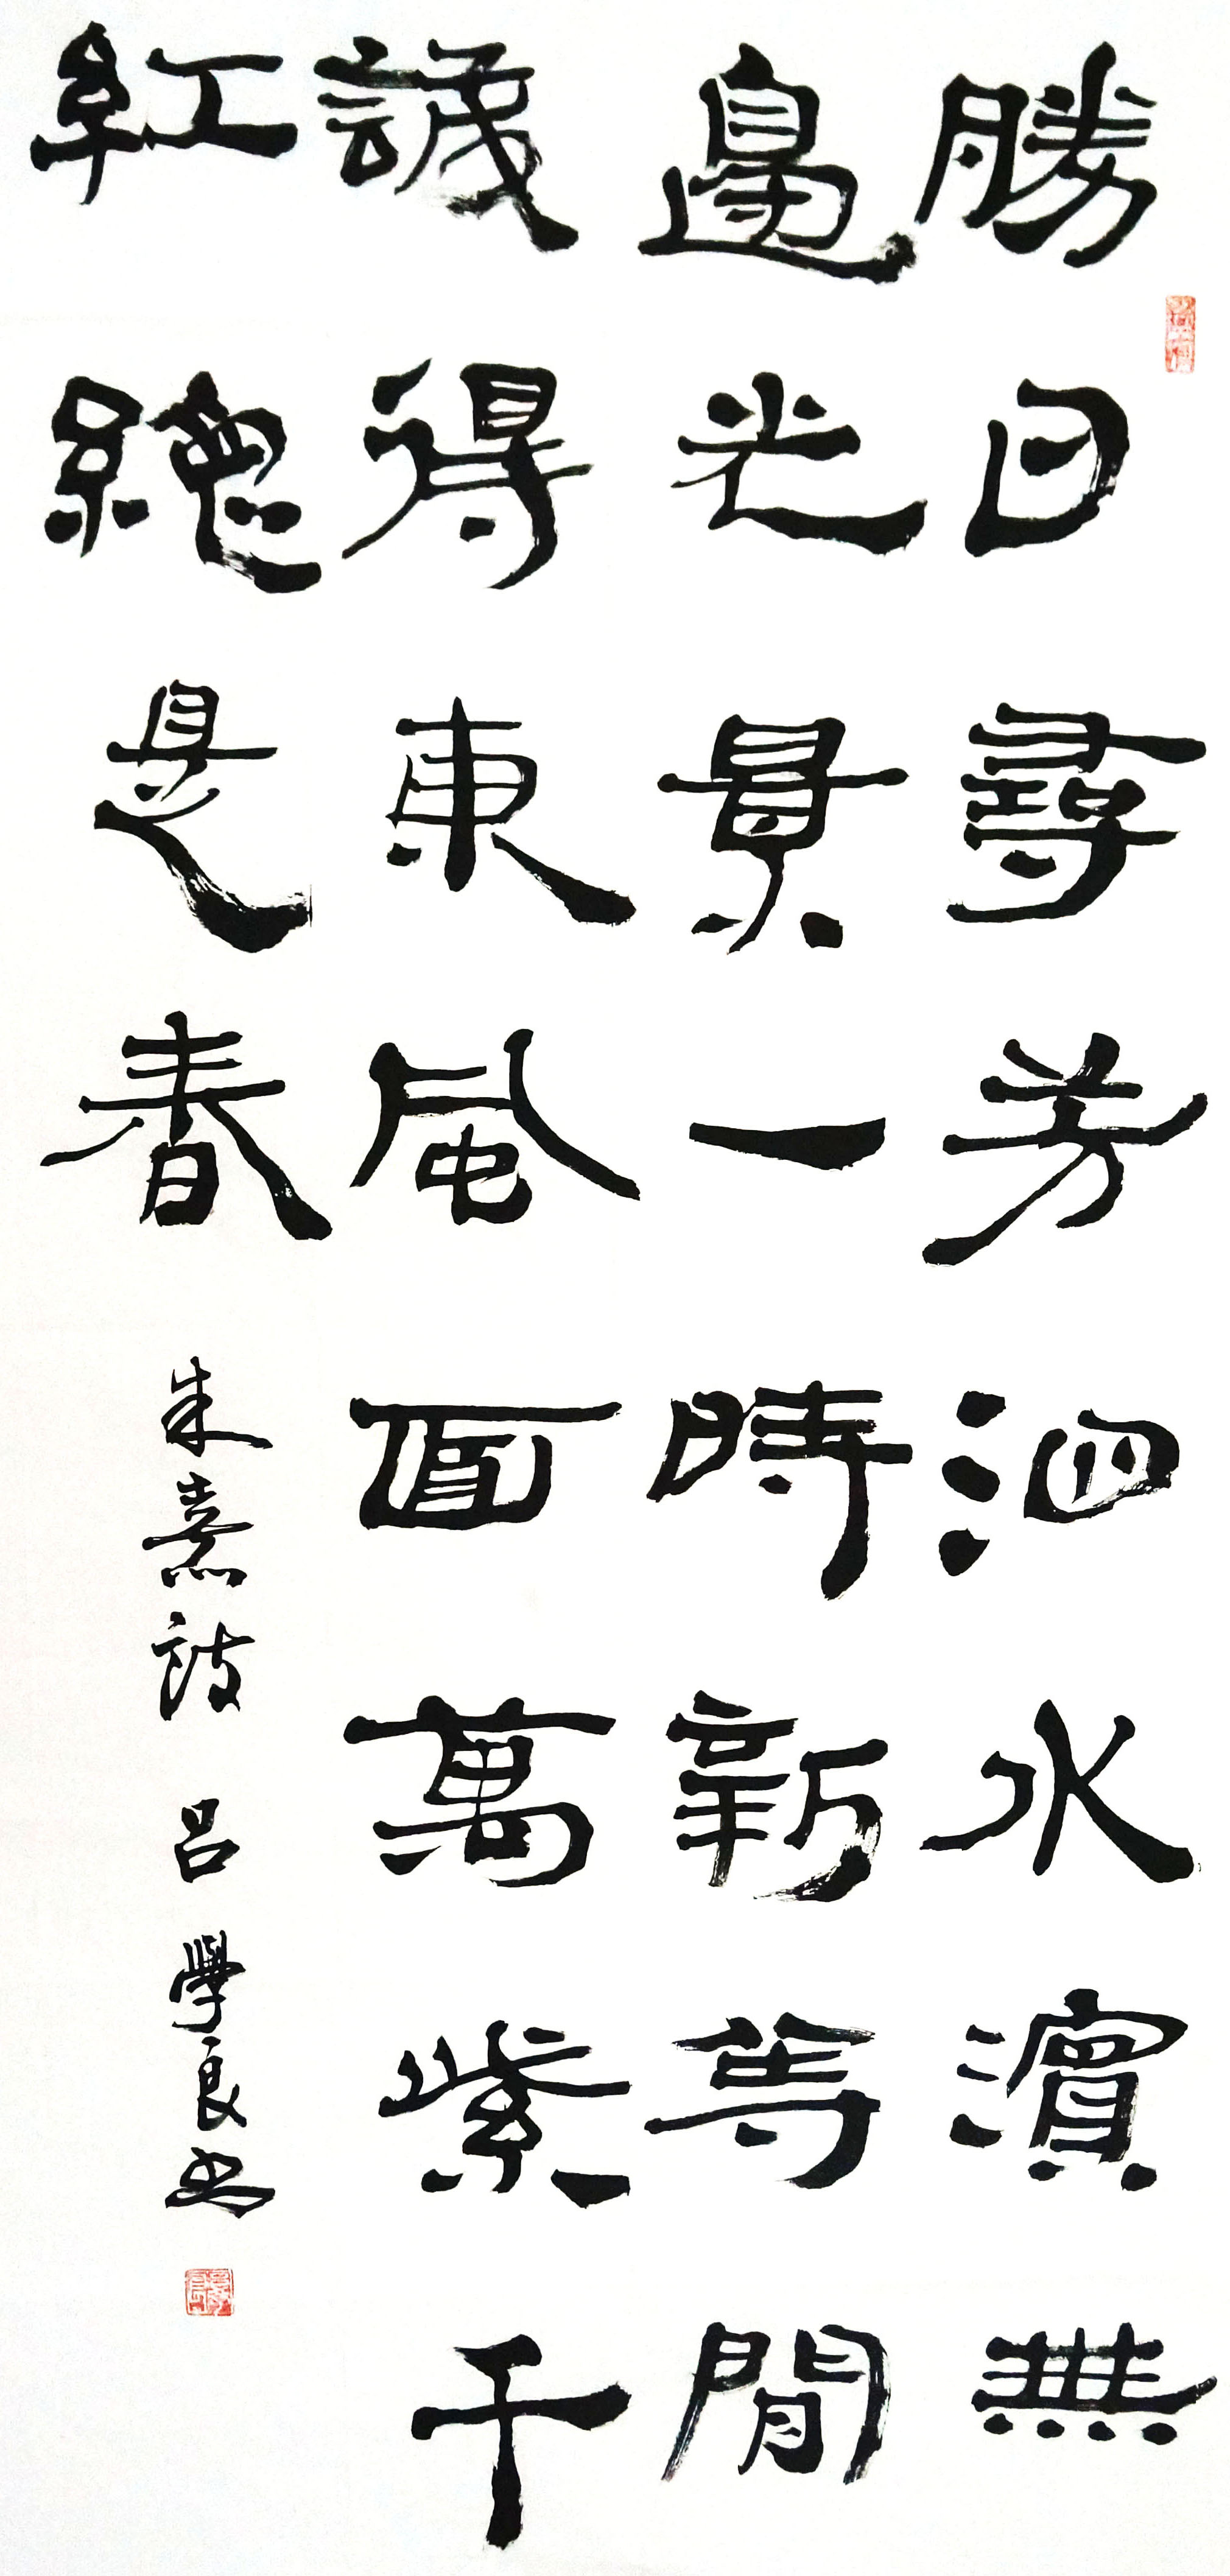 勝日尋芳泗水濱無
邊光景一時新等閒
識得東風面萬紫千
紅總是春 朱熹詩 呂學良書